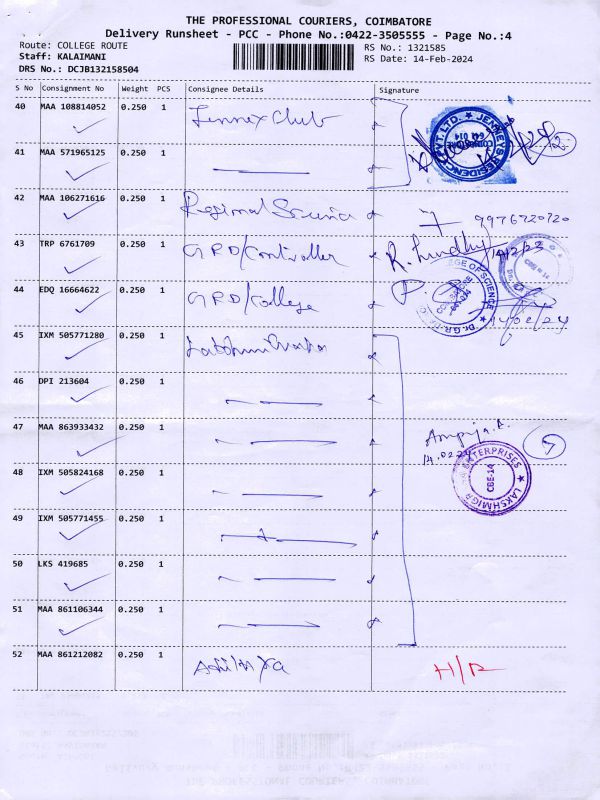 THE PROFESSIONAL COURIERS, COIMBATORE
Delivery Runsheet - PCC - Phone No.:0422-3505555 - Page No.:4
Route: COLLEGE ROUTE
RS No.: 1321585
Staff: KALAIMANI
RS Date: 14-Feb-2024
DRS No.: DCJB132158504
S No Consignment No Weight PCS Consignee Details Signature
40 MAA 108814052 0.250 1
41 MAA 571965125 0.250 1
42 MAA 106271616 0.250 1 Regional 9976720720
43 TRP 6761709 0.250 1 GRD/Controller
44 EDQ 16664622 0.250 1 GRD/College 14/02/24
45 IXM 505771280 0.250 1
46 DPI 213604 0.250 1
47 MAA 863933432 0.250 1
48 IXM 505824168 0.250 1
49 IXM 505771455 0.250 1
50 LKS 419685 0.250 1
51 MAA 861106344 0.250 1
52 MAA 861212082 0.250 1
JENNEYS RESIDENCY PVT. LTD.
COIMBATORE
641 014
COLLEGE OF SCIENCE
ENTERPRISES
CBE-14